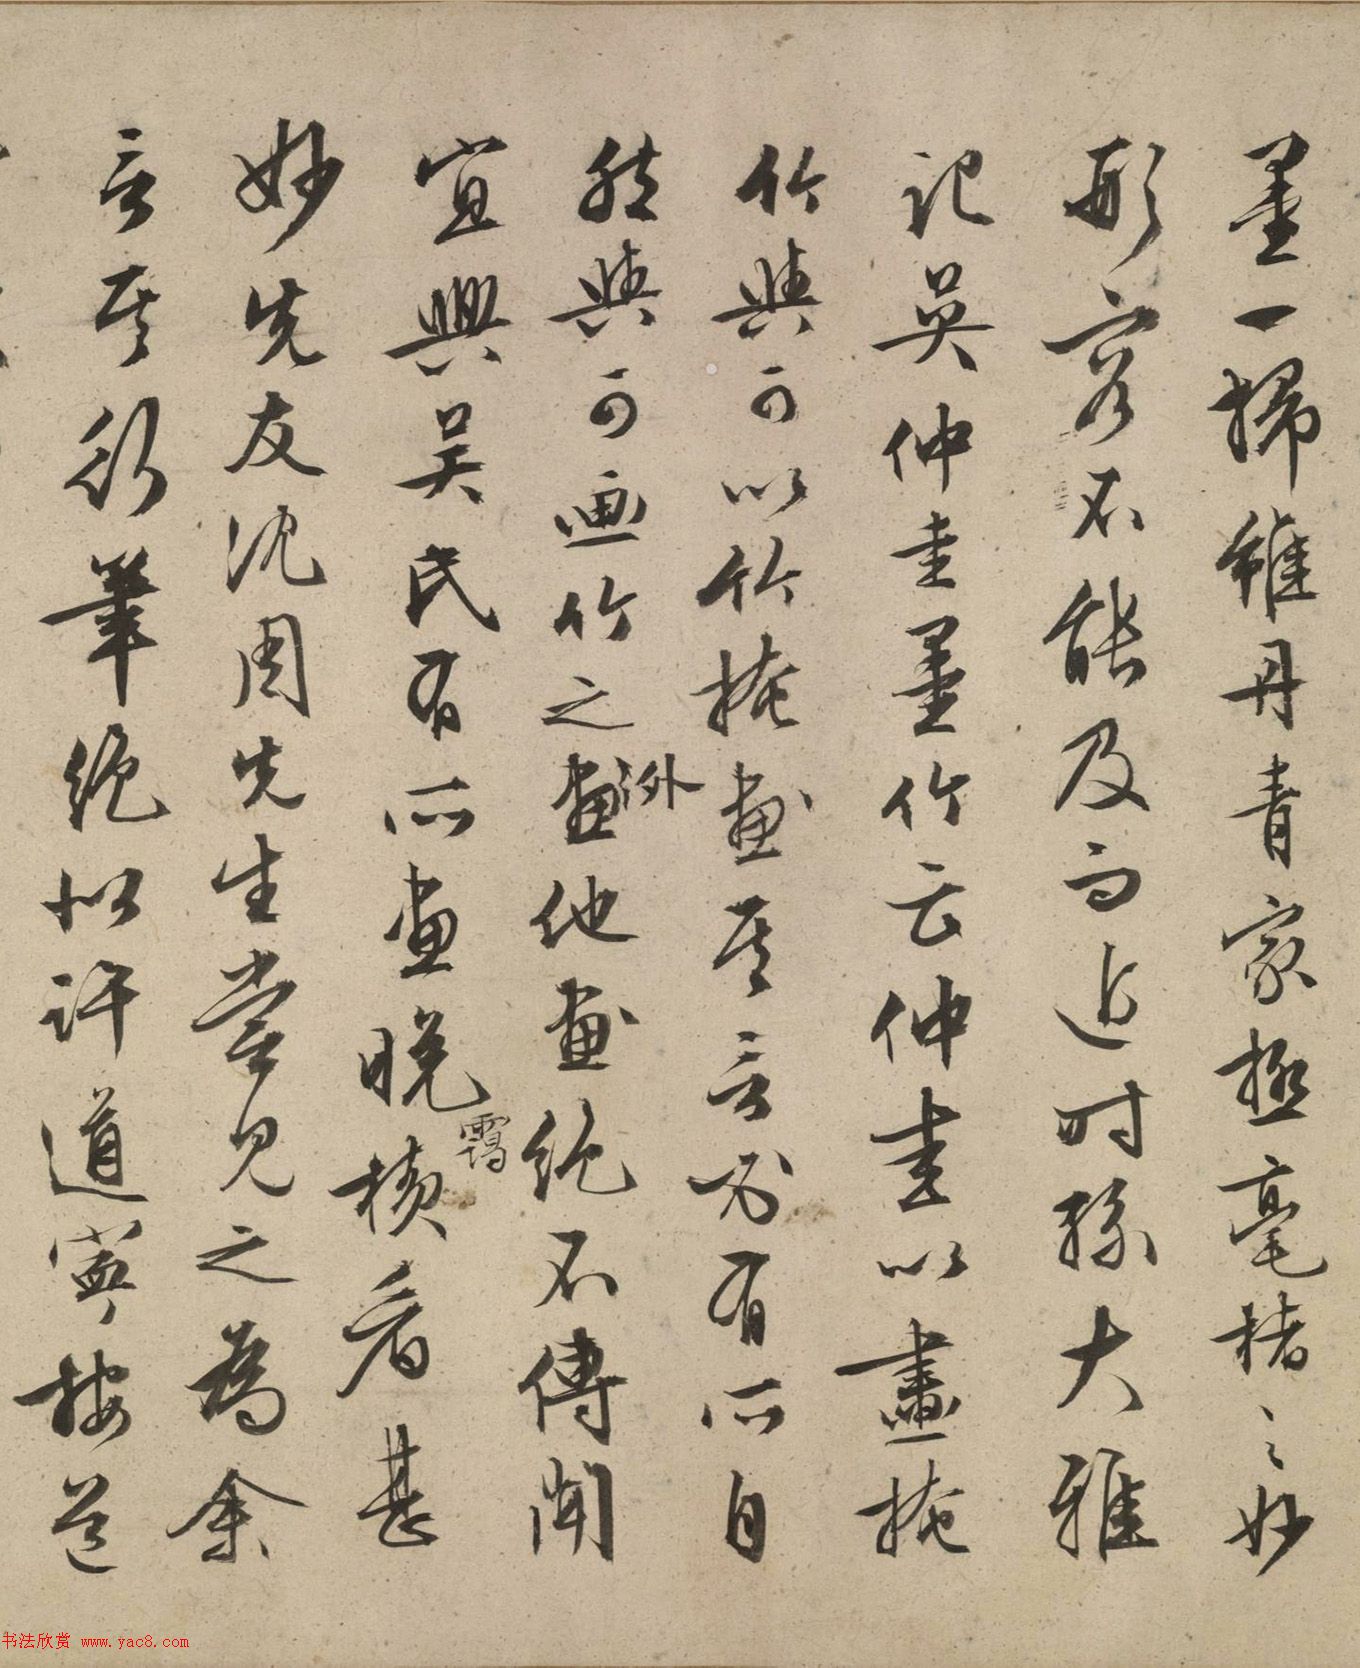 墨一掃雖丹青家極毫楮之妙
形容不能及而近時孫大雅
記吳仲圭墨竹云仲圭以畫掩
竹與可以竹掩畫其言必有所自
然與可画竹之畫外他畫絕不傳聞
宜興吳氏有所畫晚靄橫看甚
妙先友沈周先生嘗見之為余
言其行筆絕似許道寧按道
书法欣赏 www.yac8.com